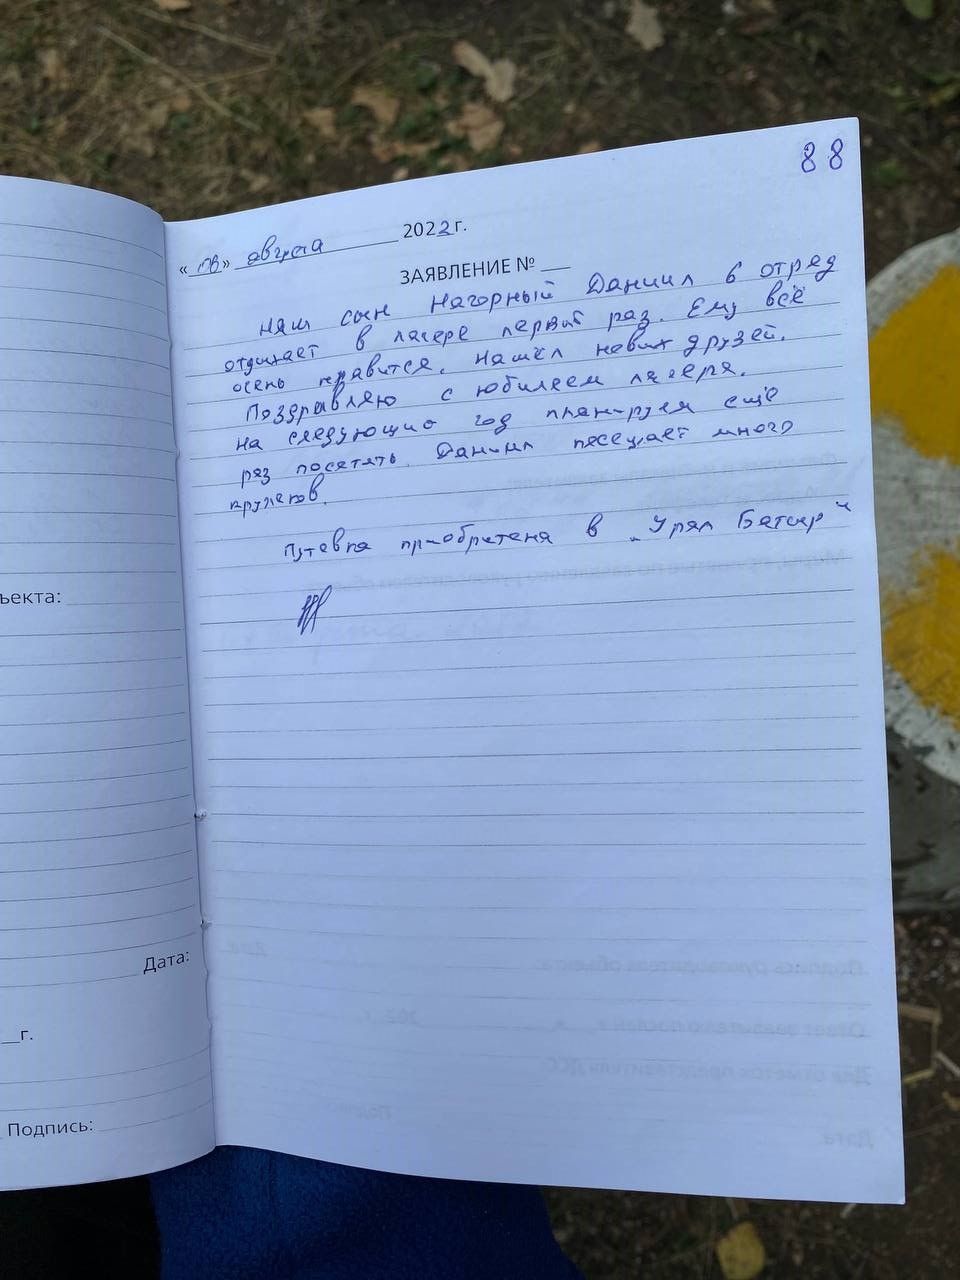 88
« 08 » августа 2022 г.
ЗАЯВЛЕНИЕ № __
Наш сын Нагорный Даниил 6 отряд
отдыхает в лагере первый раз. Ему всё
очень нравится. Нашёл новых друзей.
Поздравляю с юбилеем лагеря.
На следующий год планируем ещё
раз посетить. Даниил посещает много
кружков.
Путевка приобретена в „Урал Батыр"
ъекта:
Дата:
__г.
Подпись: